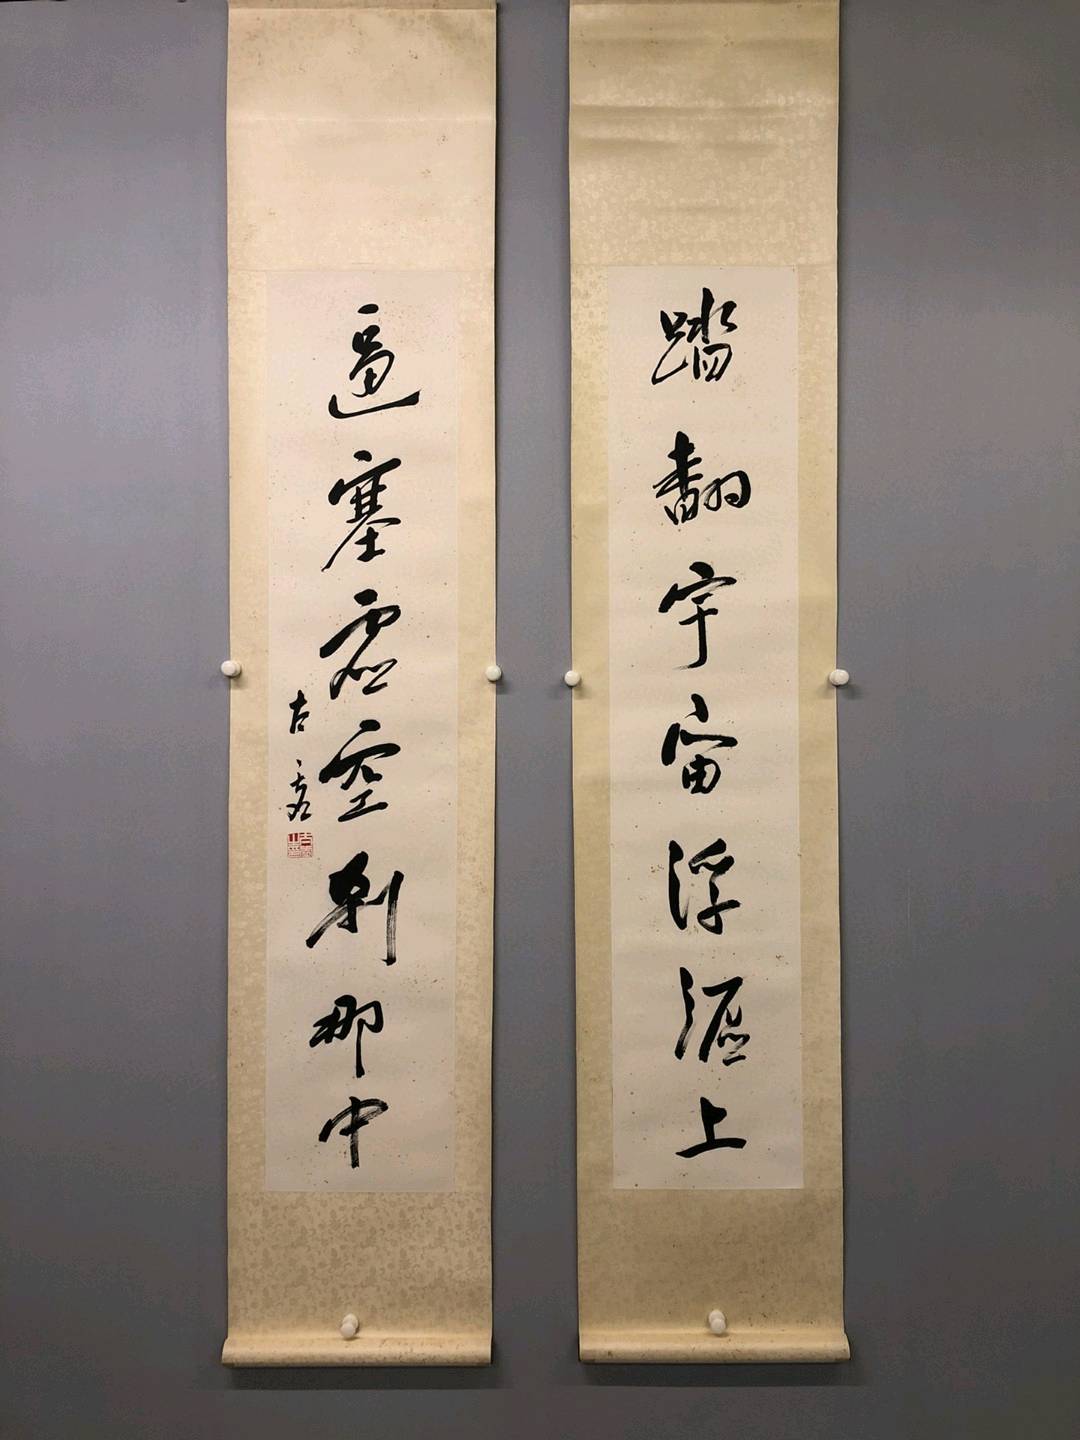 踏翻宇宙浮漚上
逼塞虛空刹那中